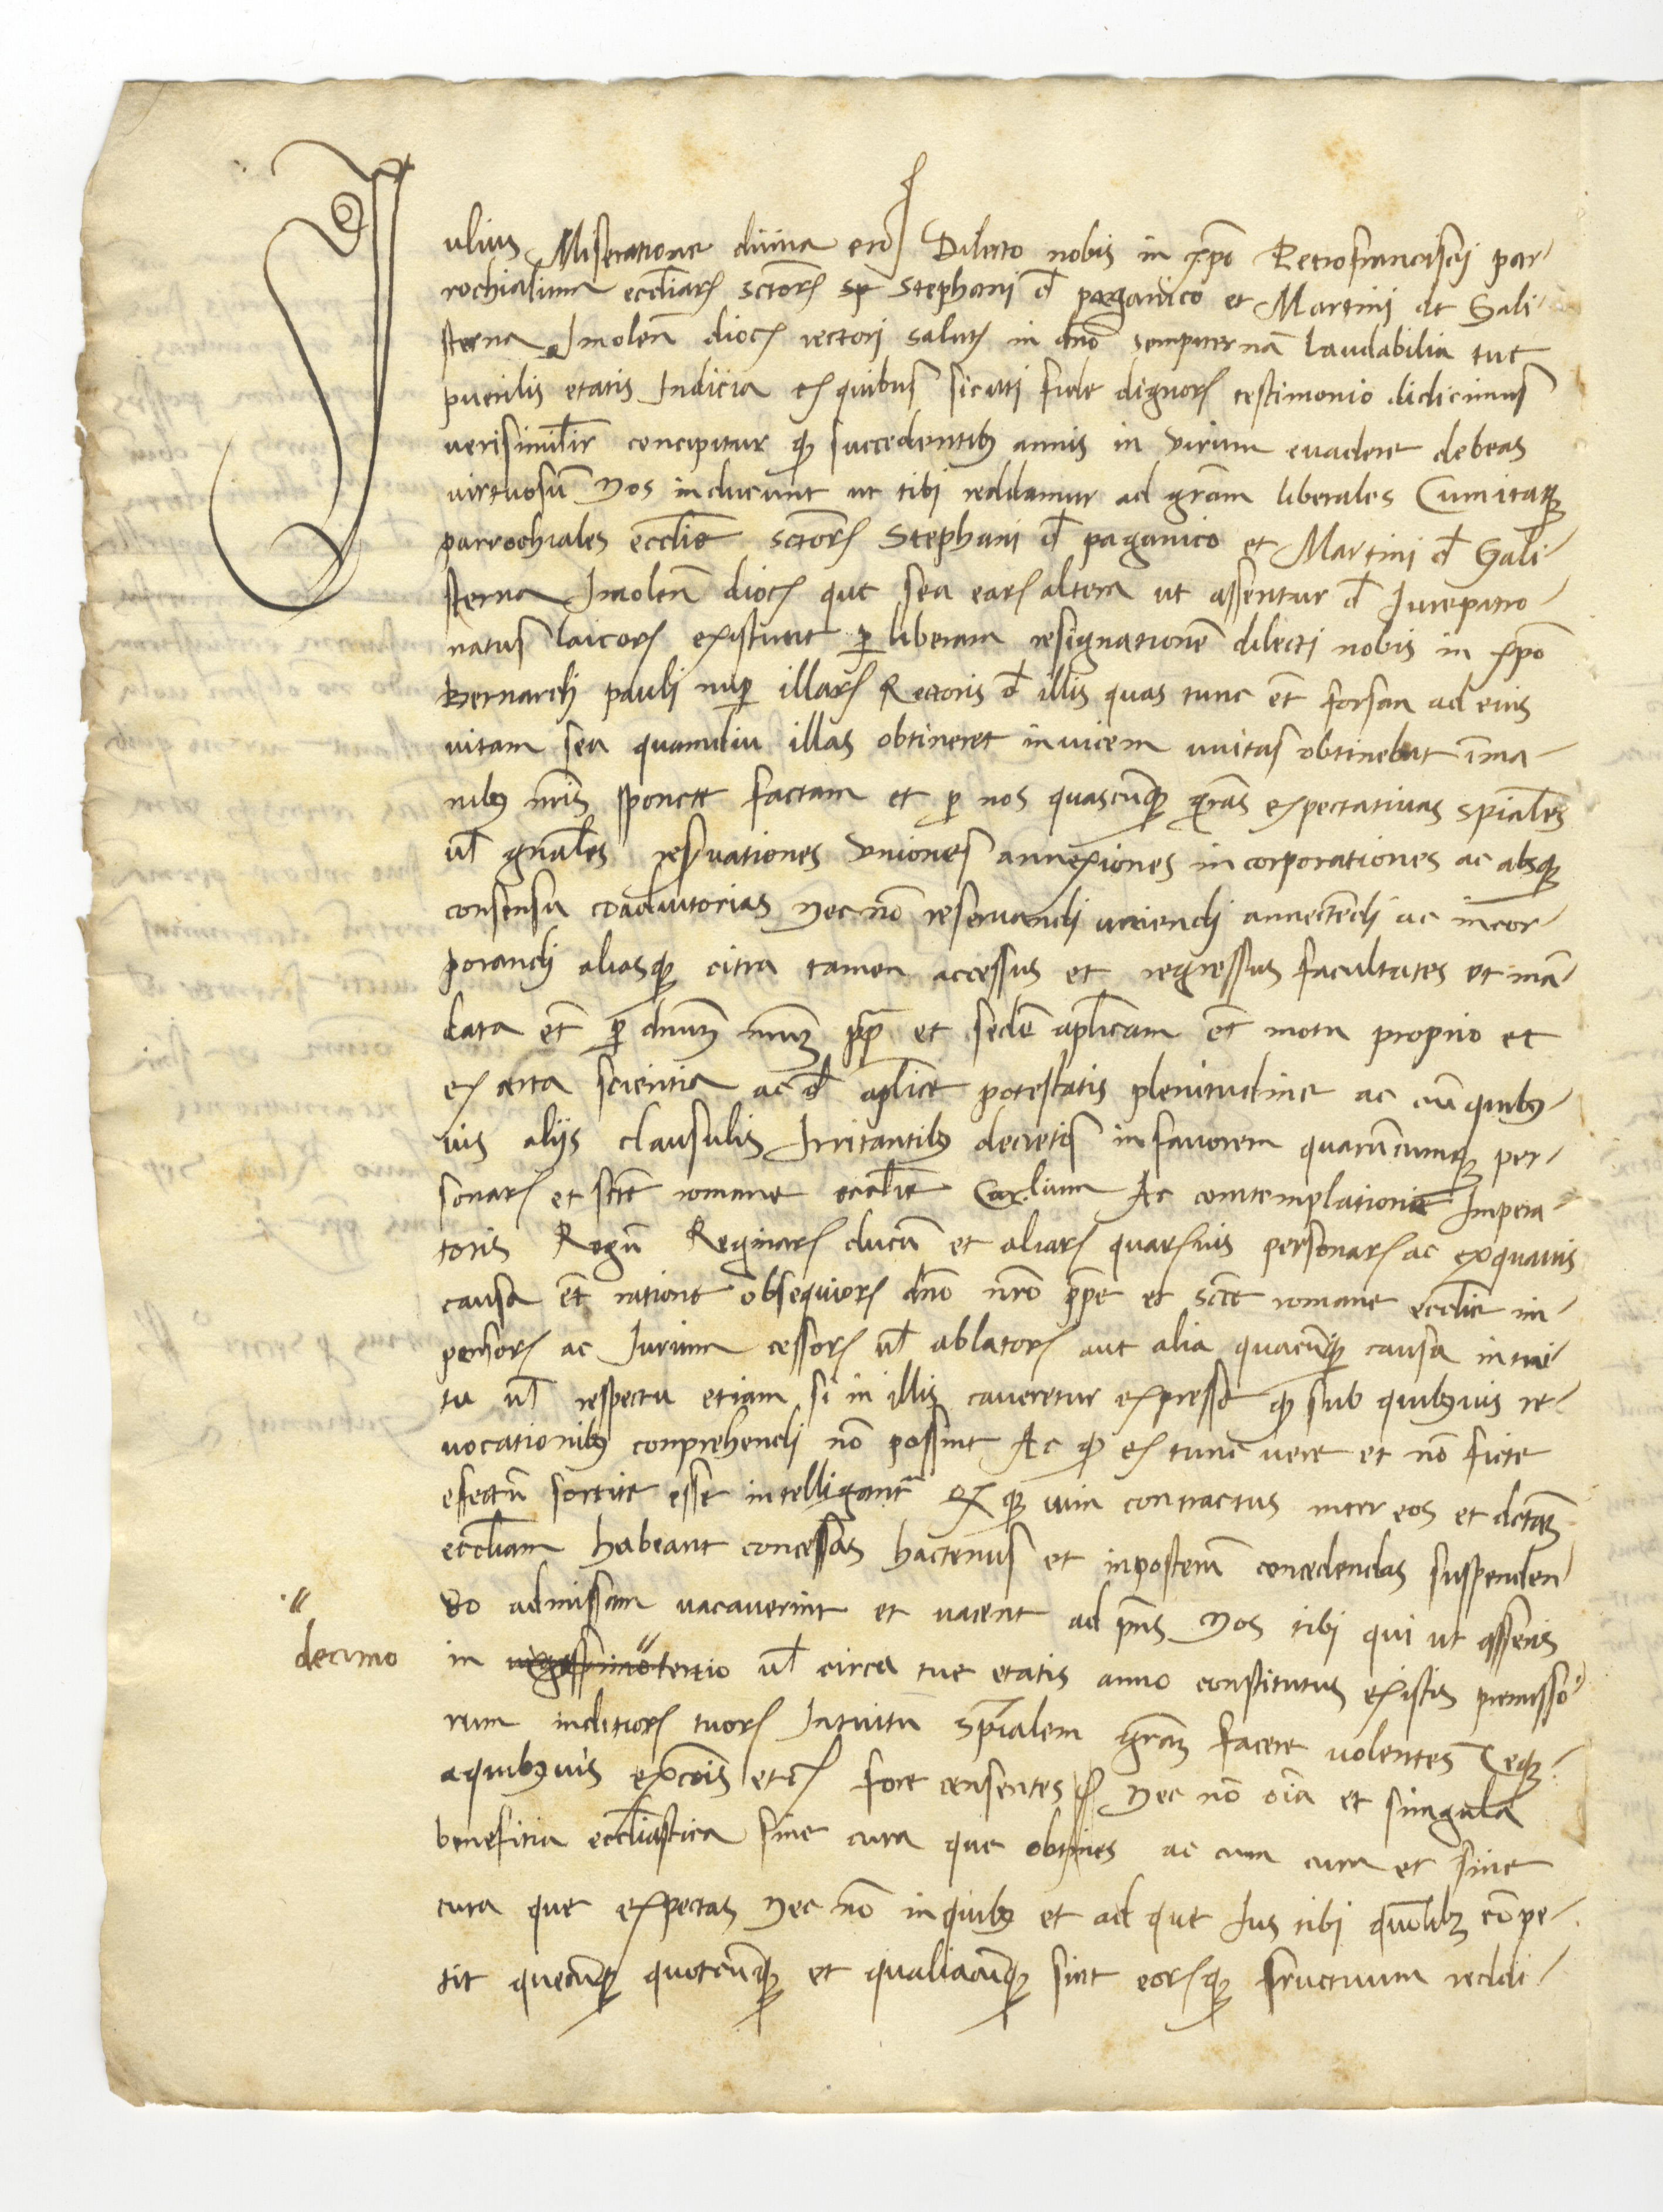 Julius Miseratione divina etc Dilecto nobis in xpo Petrofrancisci par-
rochialium eccliarꝫ sctorꝫ Stephani đ paganico et Martini de Gali-
sterna Imolen̄ diocꝫ rectori salutꝫ in dno sempiternā Laudabilia tue
puerilis etatis Indicia ex quibus sicuti fide dignorꝫ testimonio didicimus
verisimilr concipitur qꝫ succedentibꝫ annis in virum euadere debeas
virtuosū Nos inducunt ut tibi reddamur ad gram liberales Cum itaqꝫ
parrochiales ecclie sctorꝫ Stephani đ paganico et Martini đ Gali-
sterna Imolen̄ diocꝫ que seu earꝫ altera ut asseritur đ Iurepatro-
natus laicorꝫ existunt ꝑ liberam resignationē dilecti nobis in xpo
Bernardi pauli nuꝑ illarꝫ Rectoris đ illis quas tunc et̄ forsan ad eius
vitam seu quamdiu illas obtineret invicem unitas obtinebat ī ma-
nibꝫ nr̄is sponte factam et ꝑ nos quascūqꝫ gras expectativas spiales
ul̄ gnales reservationes Uniones annexiones incorporationes ac absqꝫ
consensu coadiutorias Nec nō reservandi uniendi annectendi ac incor-
porandi aliasqꝫ citra tamen accessus et regressus facultates et mā-
data et̄ ꝑ dnum nrm pp et sedē aplicam et̄ motu proprio et
ex certa scientia ac đ aplice potestatis plenitudine ac cū quibꝫ-
vis alijs clausulis Irritantibꝫ decretis in favorem quarūcumqꝫ per-
sonarꝫ et scte romane ecclie Car.lium Ac contemplatione Impera-
toris Regū Reginarꝫ ducū et aliarꝫ quarꝫvis personarꝫ ac ex quavis
causa et̄ ratione obsequiorꝫ dno nro ppe et scte romane ecclie im-
pensorꝫ ac Iurium cessorꝫ ul̄ ablatorꝫ aut alia quacūqꝫ causa intui-
tu ul̄ respectu etiam si in illis caveretur expresse qꝫ sub quibꝫvis re-
vocationibꝫ conprehendi nō possint Ac qꝫ ex tunc vere et nō ficte
efectū sortite esse intelligant̄ qꝫ vim contractus inter eos et dctam
eccliam habeant concessas hactenus et inposterū concedendas suspenden-
do admissam vacaverint et vacent ad pns Nos tibi qui ut asseris
decimo
in vigesimo tertio ul̄ circa tue etatis anno constitutus existis premisso-
rum inditiorꝫ tuorꝫ Intuitu spialem gram facere volentes Teqꝫ
a quibꝫvis excois etcꝫ fore censentes Nec nō oia et singula
benefitia ecclīastica sine cura que obtines ac cum cura et sine
cura que expectas Nec nō in quibꝫ et ad que Ius tibi quolibꝫ cōpe-
tit quecūqꝫ quotcūqꝫ et qualiacūqꝫ sint eorꝫqꝫ fructuum reddi-